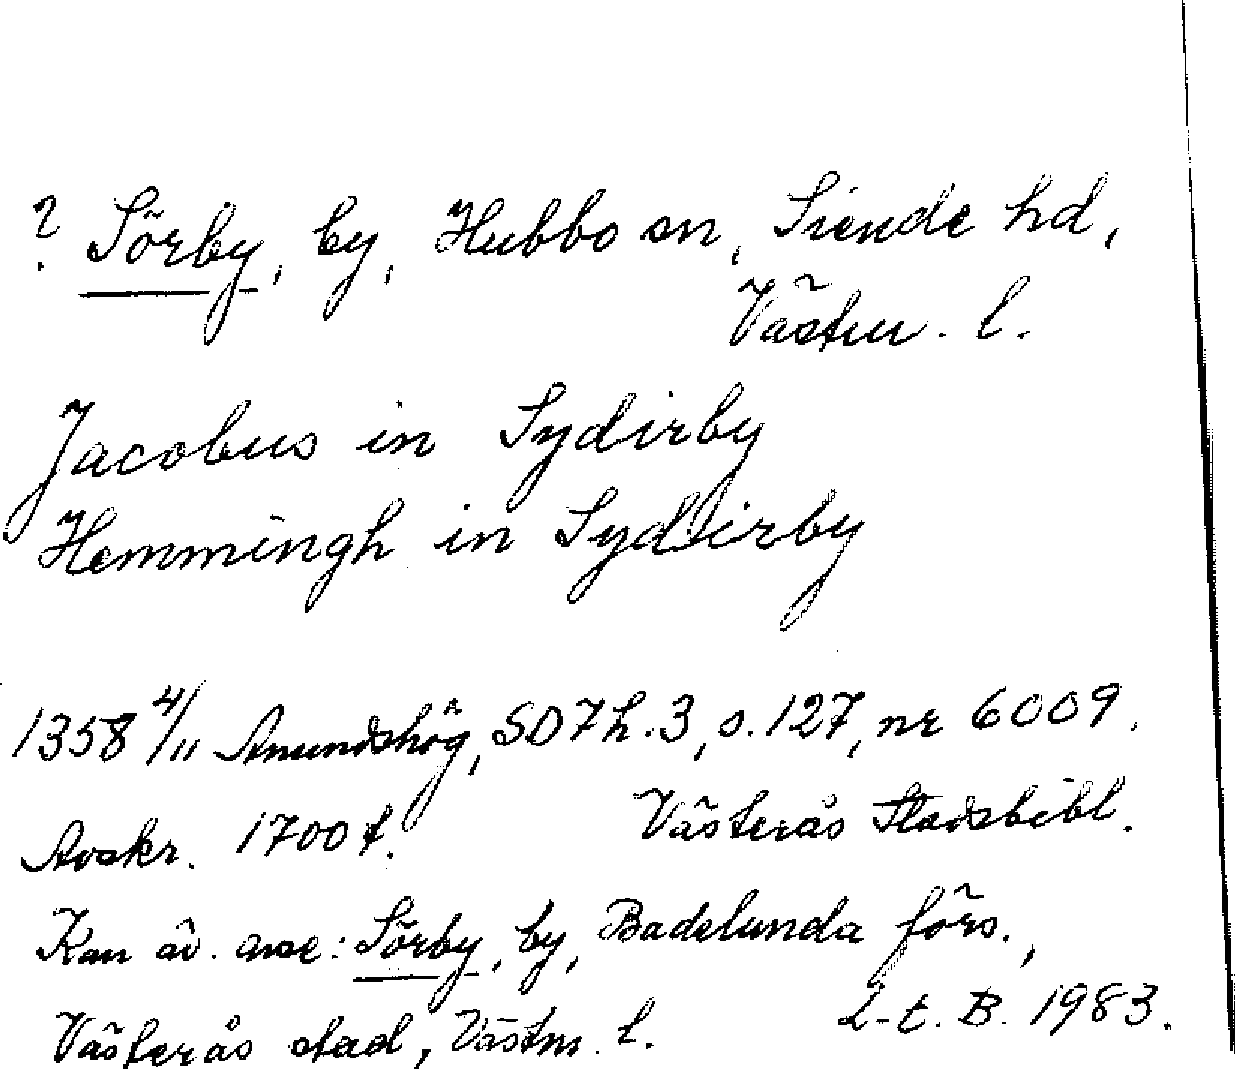 ? Sörby, by, Hubbo sn, Siende hd,
Västm. l.
Jacobus in Sydirby
Hemmingh in Sydirby
1358 4/11 Amundshög, SD7h.3, s.127, nr 6009.
Avskr. 1700 t. Västerås Stadsbibl.
Kan äv. avse: Sörby, by, Badelunda förs.,
Västerås stad, Västm. l. L-t. B. 1983.